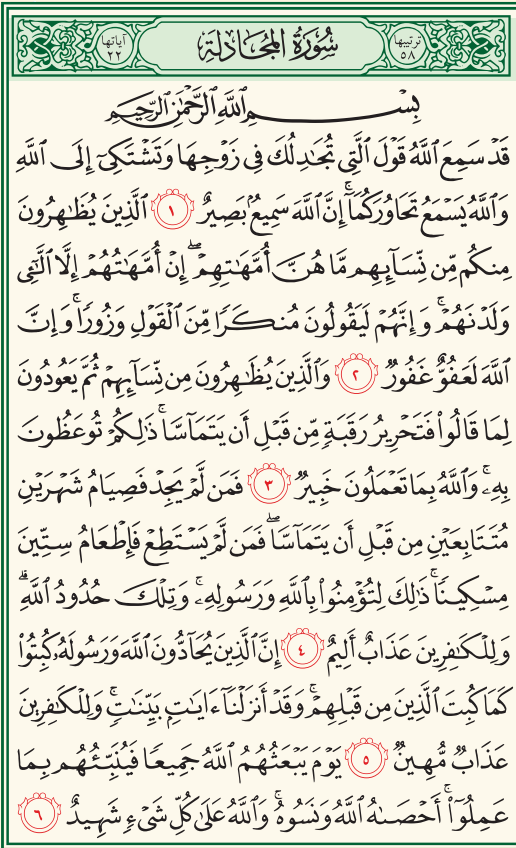 ترتيبها ٥٨ سُورَةُ المُجَادلَة آياتها ٢٢
بِسْمِ ٱللَّهِ ٱلرَّحْمَٰنِ ٱلرَّحِيمِ
قَدْ سَمِعَ ٱللَّهُ قَوْلَ ٱلَّتِي تُجَٰدِلُكَ فِي زَوْجِهَا وَتَشْتَكِيٓ إِلَى ٱللَّهِ
وَٱللَّهُ يَسْمَعُ تَحَاوُرَكُمَآۚ إِنَّ ٱللَّهَ سَمِيعُۢ بَصِيرٌ ١ ٱلَّذِينَ يُظَٰهِرُونَ
مِنكُم مِّن نِّسَآئِهِم مَّا هُنَّ أُمَّهَٰتِهِمْۖ إِنْ أُمَّهَٰتُهُمْ إِلَّا ٱلَّٰٓـِٔي
وَلَدْنَهُمْۚ وَإِنَّهُمْ لَيَقُولُونَ مُنكَرًا مِّنَ ٱلْقَوْلِ وَزُورًاۚ وَإِنَّ
ٱللَّهَ لَعَفُوٌّ غَفُورٌ ٢ وَٱلَّذِينَ يُظَٰهِرُونَ مِن نِّسَآئِهِمْ ثُمَّ يَعُودُونَ
لِمَا قَالُوا۟ فَتَحْرِيرُ رَقَبَةٍ مِّن قَبْلِ أَن يَتَمَآسَّاۚ ذَٰلِكُمْ تُوعَظُونَ
بِهِۦۚ وَٱللَّهُ بِمَا تَعْمَلُونَ خَبِيرٌ ٣ فَمَن لَّمْ يَجِدْ فَصِيَامُ شَهْرَيْنِ
مُتَتَابِعَيْنِ مِن قَبْلِ أَن يَتَمَآسَّاۖ فَمَن لَّمْ يَسْتَطِعْ فَإِطْعَامُ سِتِّينَ
مِسْكِينًاۚ ذَٰلِكَ لِتُؤْمِنُوا۟ بِٱللَّهِ وَرَسُولِهِۦۚ وَتِلْكَ حُدُودُ ٱللَّهِۗ
وَلِلْكَٰفِرِينَ عَذَابٌ أَلِيمٌ ٤ إِنَّ ٱلَّذِينَ يُحَآدُّونَ ٱللَّهَ وَرَسُولَهُۥ كُبِتُوا۟
كَمَا كُبِتَ ٱلَّذِينَ مِن قَبْلِهِمْۚ وَقَدْ أَنزَلْنَآ ءَايَٰتٍۭ بَيِّنَٰتٍۚ وَلِلْكَٰفِرِينَ
عَذَابٌ مُّهِينٌ ٥ يَوْمَ يَبْعَثُهُمُ ٱللَّهُ جَمِيعًا فَيُنَبِّئُهُم بِمَا
عَمِلُوٓا۟ۚ أَحْصَىٰهُ ٱللَّهُ وَنَسُوهُۚ وَٱللَّهُ عَلَىٰ كُلِّ شَيْءٍ شَهِيدٌ ٦